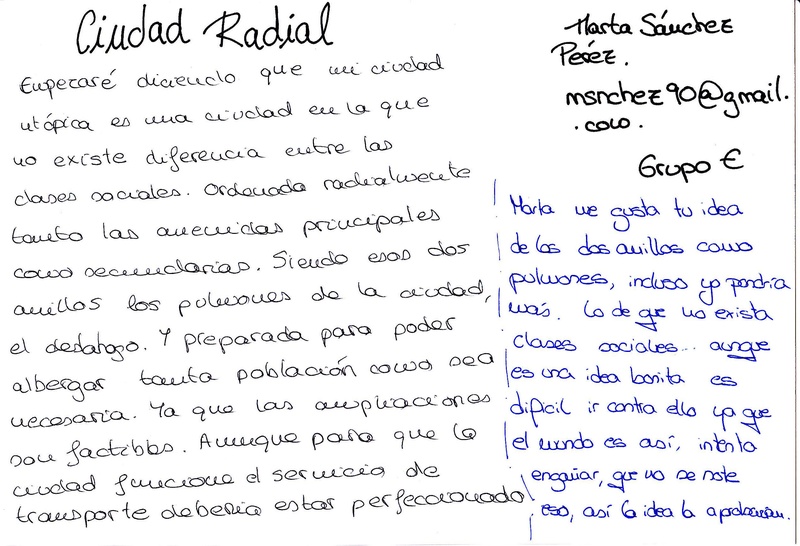 Ciudad Radial
Empezaré diciendo que mi ciudad
utópica es una ciudad en la que
no existe diferencia entre las
clases sociales. Ordenada radialmente
tanto las avenidas principales
como secundarias. Siendo esos dos
anillos los pulmones de la ciudad,
el desahogo. Y preparada para poder
albergar tanta población como sea
necesaria. Ya que las ampliaciones
son factibles. Aunque para que la
ciudad funcione el servicio de
transporte deberia estar perfeccionado
Marta Sánchez
Peréz.
msnchez90@gmail.
.com.
Grupo E
Marta me gusta tu idea
de los dos anillos como
pulmones, incluso yo pondría
más. Lo de que no exista
clases sociales... aunque
es una idea bonita es
dificil ir contra ello ya que
el mundo es así, intenta
engañar, que no se note
eso, así la idea la aprobarían.